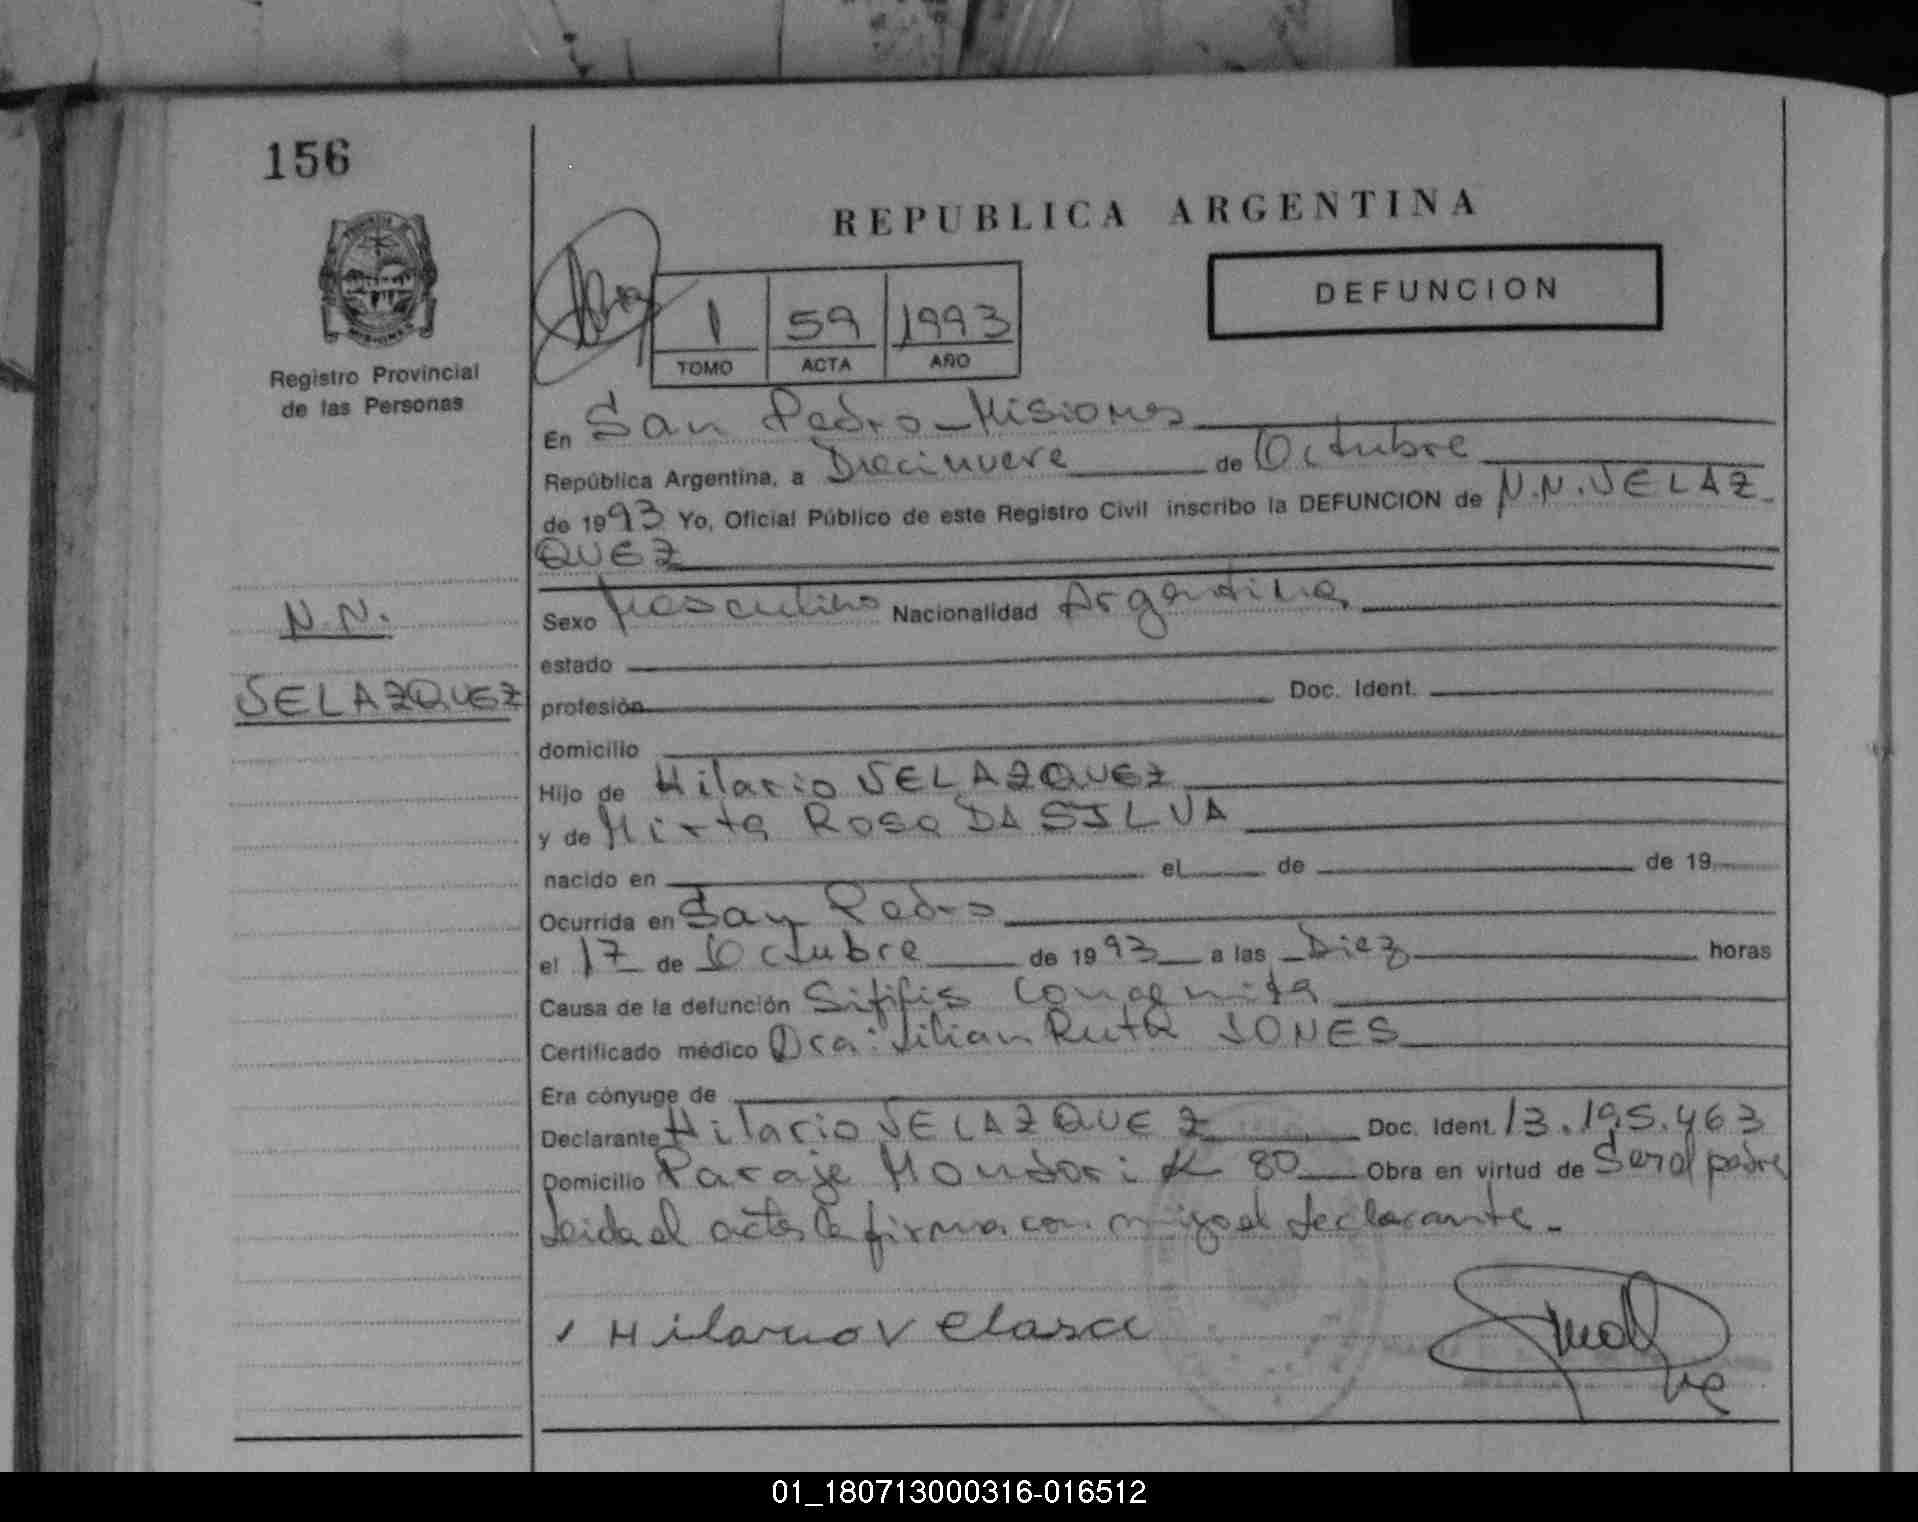 156
REPUBLICA ARGENTINA
DEFUNCION
1 59 1993
TOMO ACTA AÑO
Registro Provincial
de las Personas
En San Pedro - Misiones
República Argentina, a Diecinueve de Octubre
de 1993 Yo, Oficial Público de este Registro Civil inscribo la DEFUNCION de N.N. VELAZ-
QUEZ
N.N.
VELAZQUEZ
Sexo Masculino Nacionalidad Argentina
estado
profesión Doc. Ident.
domicilio
Hijo de Hilario VELAZQUEZ
y de Mirta Rosa DA SILVA
nacido en el de de 19
Ocurrida en San Pedro
el 17 de Octubre de 1993 a las Diez horas
Causa de la defunción Sififis Congenita
Certificado médico Dra: Lilian Ruth JONES
Era cónyuge de
Declarante Hilario VELAZQUEZ Doc. Ident. 13.195.463
Domicilio Paraje Mondori K 80 Obra en virtud de Ser el padre
Leida el acta la firma conmigo el declarante.-
Hilario Velasce
01_180713000316-016512